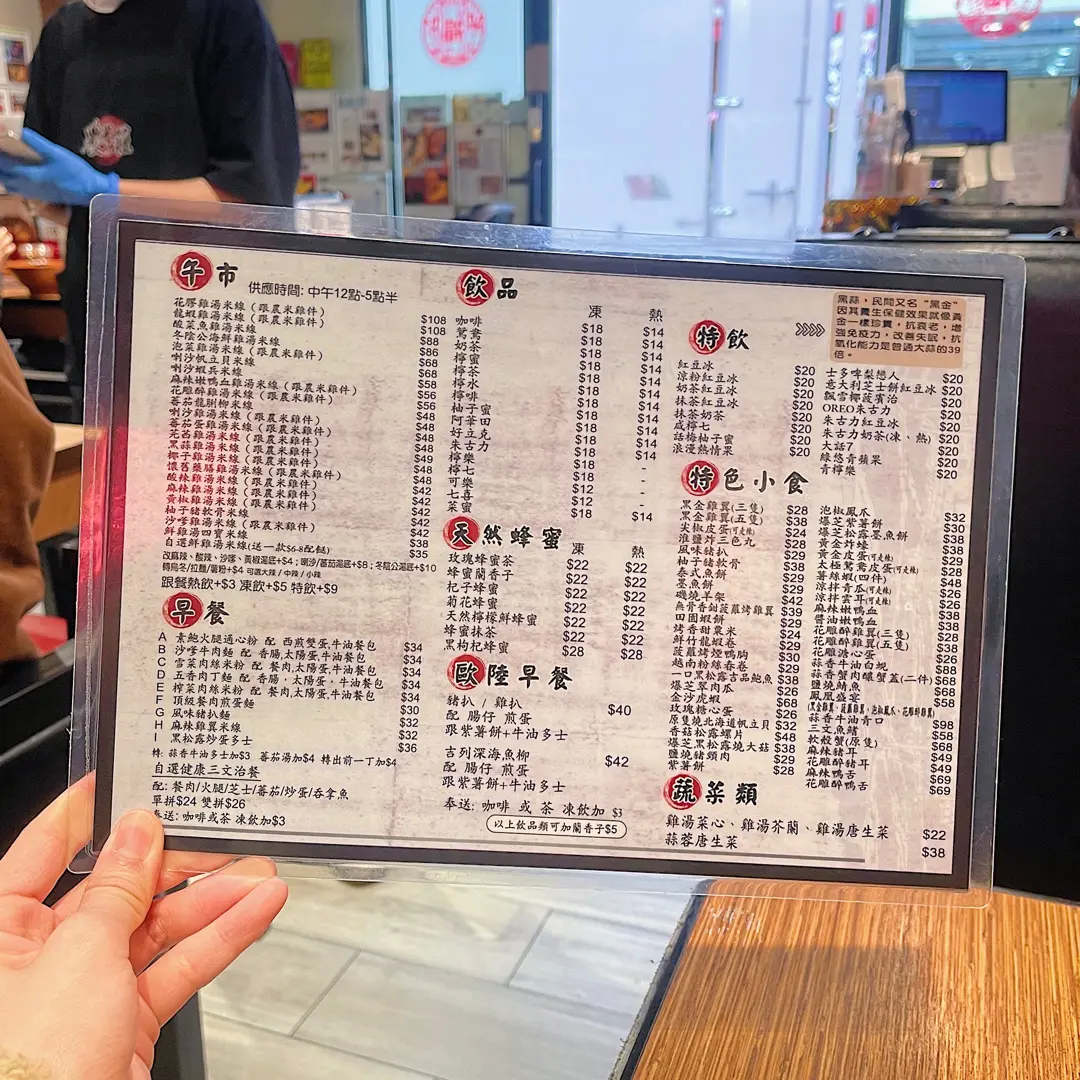 午市
供應時間: 中午12點-5點半
花膠雞湯米線 (跟農米雞件) $108
龍蝦雞湯米線 (跟農米雞件) $108
酸菜魚雞湯米線 $88
冬陰公海鮮雞湯米線 $86
泡菜雞湯米線 (跟農米雞件) $68
喇沙帆立貝米線 $68
喇沙蝦兵米線 $58
麻辣嫩鴨血雞湯米線 (跟農米雞件) $56
花雕醉雞湯米線 (跟農米雞件) $56
番茄龍脷柳米線 $48
喇沙雞湯米線 (跟農米雞件) $48
番茄蛋雞湯米線 (跟農米雞件) $48
芫茜雞湯米線 (跟農米雞件) $49
黑蒜雞湯米線 (跟農米雞件) $48
椰子雞湯米線 (跟農米雞件) $48
懷舊藥膳雞湯米線 (跟農米雞件) $42
酸辣雞湯米線 (跟農米雞件) $42
麻辣雞湯米線 (跟農米雞件) $42
黃椒雞湯米線 (跟農米雞件) $42
柚子豬軟骨米線
沙嗲雞湯米線 (跟農米雞件) $42
鮮雞湯四寶米線 $38
自選鮮雞湯米線(送一款$6-8配餸) $35
改麻辣、酸辣、沙嗲、黃椒湯底+$4；喇沙/番茄湯底+$8；冬陰公湯底+$10
轉烏冬/拉麵/薯粉+$4 可選大辣 / 中辣 / 小辣
跟餐熱飲+$3 凍飲+$5 特飲+$9
早餐
A 素鮑火腿通心粉 配 西煎雙蛋,牛油餐包 $34
B 沙爹牛肉麵 配 香腸,太陽蛋,牛油餐包 $34
C 雪菜肉絲米粉 配 餐肉,太陽蛋,牛油餐包 $34
D 五香肉丁麵 配 香腸，太陽蛋，牛油餐包 $34
E 榨菜肉絲米粉 配 餐肉,太陽蛋,牛油餐包 $34
F 頂級餐肉煎蛋麵 $30
G 風味豬扒麵 $32
H 麻辣雞翼米線 $32
I 黑松露炒蛋多士 $36
轉: 蒜香牛油多士加$3 番茄湯加$4 轉出前一丁加$4
自選健康三文治餐
配: 餐肉/火腿/芝士/番茄/炒蛋/吞拿魚
單拼$24 雙拼$26
奉送: 咖啡或茶 凍飲加$3
飲品 凍 熱
咖啡 $18 $14
鴛鴦 $18 $14
奶茶 $18 $14
檸茶 $18 $14
檸蜜 $18 $14
檸水 $18 $14
檸啡 $18 $14
柚子蜜 $18 $14
阿華田 $18 $14
好立克 $18 $14
朱古力 $18 $14
檸樂 $18 -
檸七 $18 -
可樂 $12 -
七喜 $12 -
菜蜜 $18 $14
天然蜂蜜 凍 熱
玫瑰蜂蜜茶 $22 $22
蜂蜜蘭香子 $22 $22
杞子蜂蜜 $22 $22
菊花蜂蜜 $22 $22
天然檸檬鮮蜂蜜 $22 $22
蜂蜜抹茶 $22 $22
黑枸杞蜂蜜 $28 $28
歐陸早餐
豬扒 / 雞扒
配 腸仔 煎蛋 $40
跟紫薯餅+牛油多士
吉列深海魚柳
配 腸仔 煎蛋 $42
跟紫薯餅+牛油多士
奉送: 咖啡 或 茶 凍飲加 $3
以上飲品類可加蘭香子$5
特飲
黑蒜，民間又名“黑金”
因其養生保健效果就像黃
金一樣珍貴，抗衰老，增
強免疫力，改善失眠，抗
氧化能力是普通大蒜的39
倍。
紅豆冰 $20
涼粉紅豆冰 $20
奶茶紅豆冰 $20
抹茶紅豆冰 $20
抹茶奶茶 $20
咸檸七 $20
話梅柚子蜜 $20
浪漫熱情果 $20
士多啤梨戀人 $20
意大利芝士餅紅豆冰 $20
飄雪椰菠賓治 $20
OREO朱古力 $20
朱古力紅豆冰 $20
朱古力奶茶(凍、熱) $20
大話7 $20
綠悠青蘋果 $20
青檸樂 $20
特色小食
黑金雞翼(三隻) $28
黑金雞翼(五隻) $38
尖椒皮蛋(可走辣) $24
淮鹽炸三色丸 $28
風味豬扒 $30
柚子豬軟骨 $28
泰式魚餅 $30
墨魚餅 $29
磯燒羊架 $42
無骨香甜菠蘿烤雞翼 $39
田園蝦餅 $30
烤香甜粟米 $24
鮮竹龍蝦卷 $29
菠蘿烤煙鴨胸 $30
越南粉絲春卷 $29
一口黑松露吉品鮑魚 $38
爆芝單肉瓜 $26
金沙虎蝦 $68
玫瑰糖心蛋 $26
原隻燒北海道帆立貝 $32
香菇松露螺片 $48
爆芝黑松露燒大菇 $38
鹽燒豬頸肉 $29
紫薯餅 $28
泡椒鳳爪 $32
爆芝紫薯餅 $30
爆芝松露墨魚餅 $38
黃金炸蟮 $29
黃金皮蛋(可走辣) $29
太極鴛鴦皮蛋(可走辣) $48
薯絲蝦(四件) $26
涼拌青瓜(可走辣) $26
涼拌雲耳(可走辣) $38
麻辣嫩鴨血 $38
醬油嫩鴨血 $28
花雕醉雞翼(三隻) $38
花雕醉雞翼(五隻) $26
花雕溏心蛋 $88
蒜香牛油白蜆 $68
蒜香蟹肉釀蟹蓋(二件) $68
鹽燒鯖魚 $58
鳳凰盛宴
(黑金雞翼、菠蘿雞翼、泡椒鳳爪、花雕醉雞翼) $98
蒜香牛油青口 $58
三文魚鰭 $68
軟殼蟹(原隻) $49
麻辣豬耳 $49
花雕醉豬耳 $69
麻辣鴨舌 $69
花雕醉鴨舌
蔬菜類
雞湯菜心、雞湯芥蘭、雞湯唐生菜 $22
蒜蓉唐生菜 $38